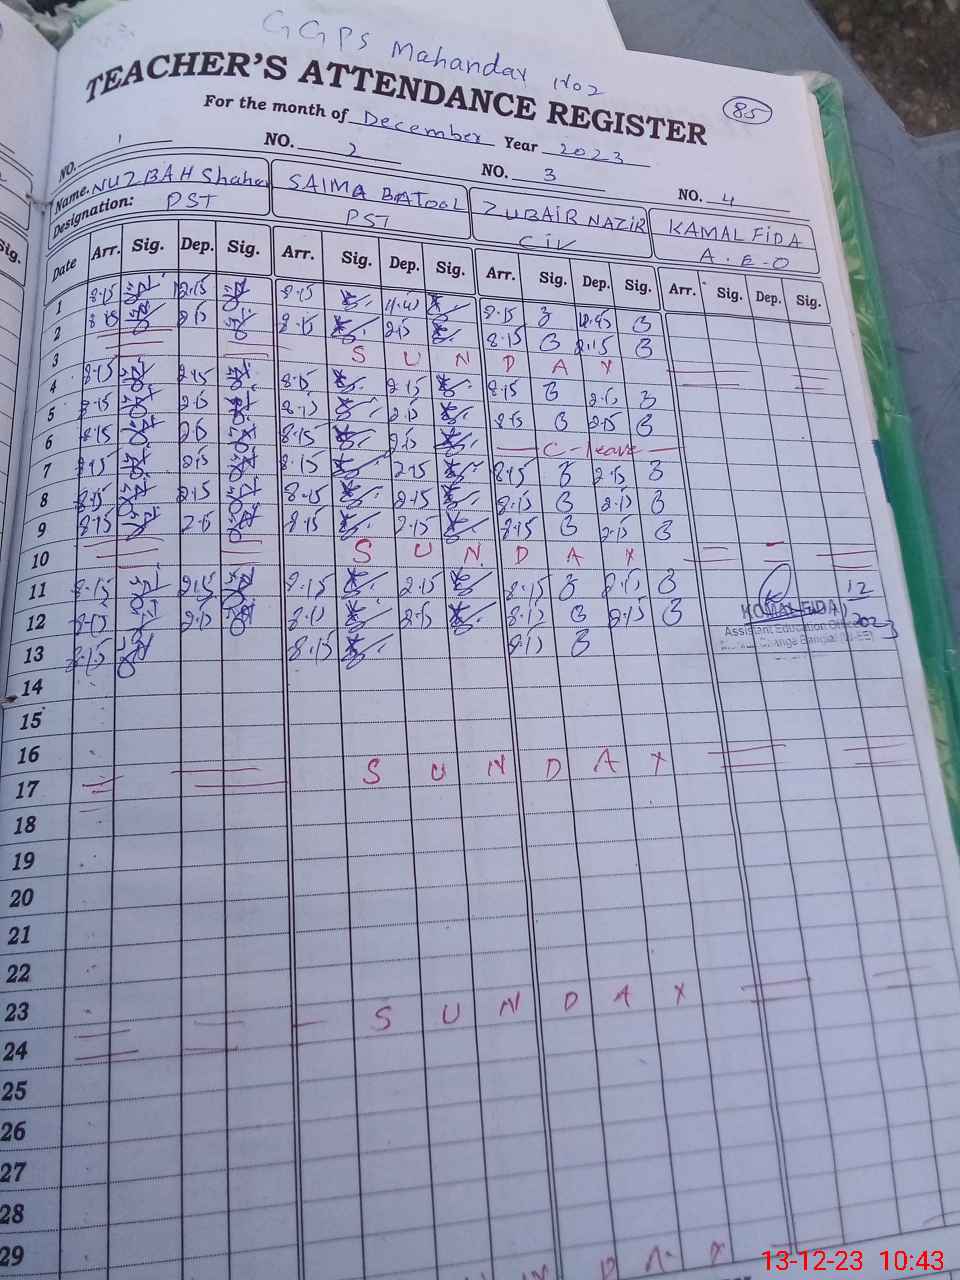 GGPS Mahandar No2
TEACHER'S ATTENDANCE REGISTER
85
For the month of December Year 2023
NO. 1 NO. 2 NO. 3 NO. 4
Name. NUZBAH Shaheen SAIMA BATOOL ZUBAIR NAZIR KAMAL FIDA
Designation: PST PST CIV A.E.O
Date Arr. Sig. Dep. Sig. Arr. Sig. Dep. Sig. Arr. Sig. Dep. Sig. Arr. Sig. Dep. Sig.
1 8.15 12.15 8.15 11.45 8.15 12.45
2 8.15 2.15 8.15 2.15 8.15 2.15
3 S U N D A Y
4 8.15 2.15 8.15 2.15 8.15 2.15
5 8.15 2.15 8.15 2.15 8.15 2.15
6 8.15 2.15 8.15 2.15 C-leave
7 8.15 2.15 8.15 2.15 8.15 2.15
8 8.15 2.15 8.15 2.15 8.15 2.15
9 8.15 2.15 8.15 2.15 8.15 2.15
10 S U N D A Y
11 8.15 2.15 8.15 2.15 8.15 2.15
12 8.15 2.15 8.15 2.15 8.15 2.15 12
KOMAL FIDA 2023
Assistant Education
13 8.15 8.15 8.15
14
15
16
17 S U N D A Y
18
19
20
21
22
23 S U N D A Y
24
25
26
27
28
29
13-12-23 10:43